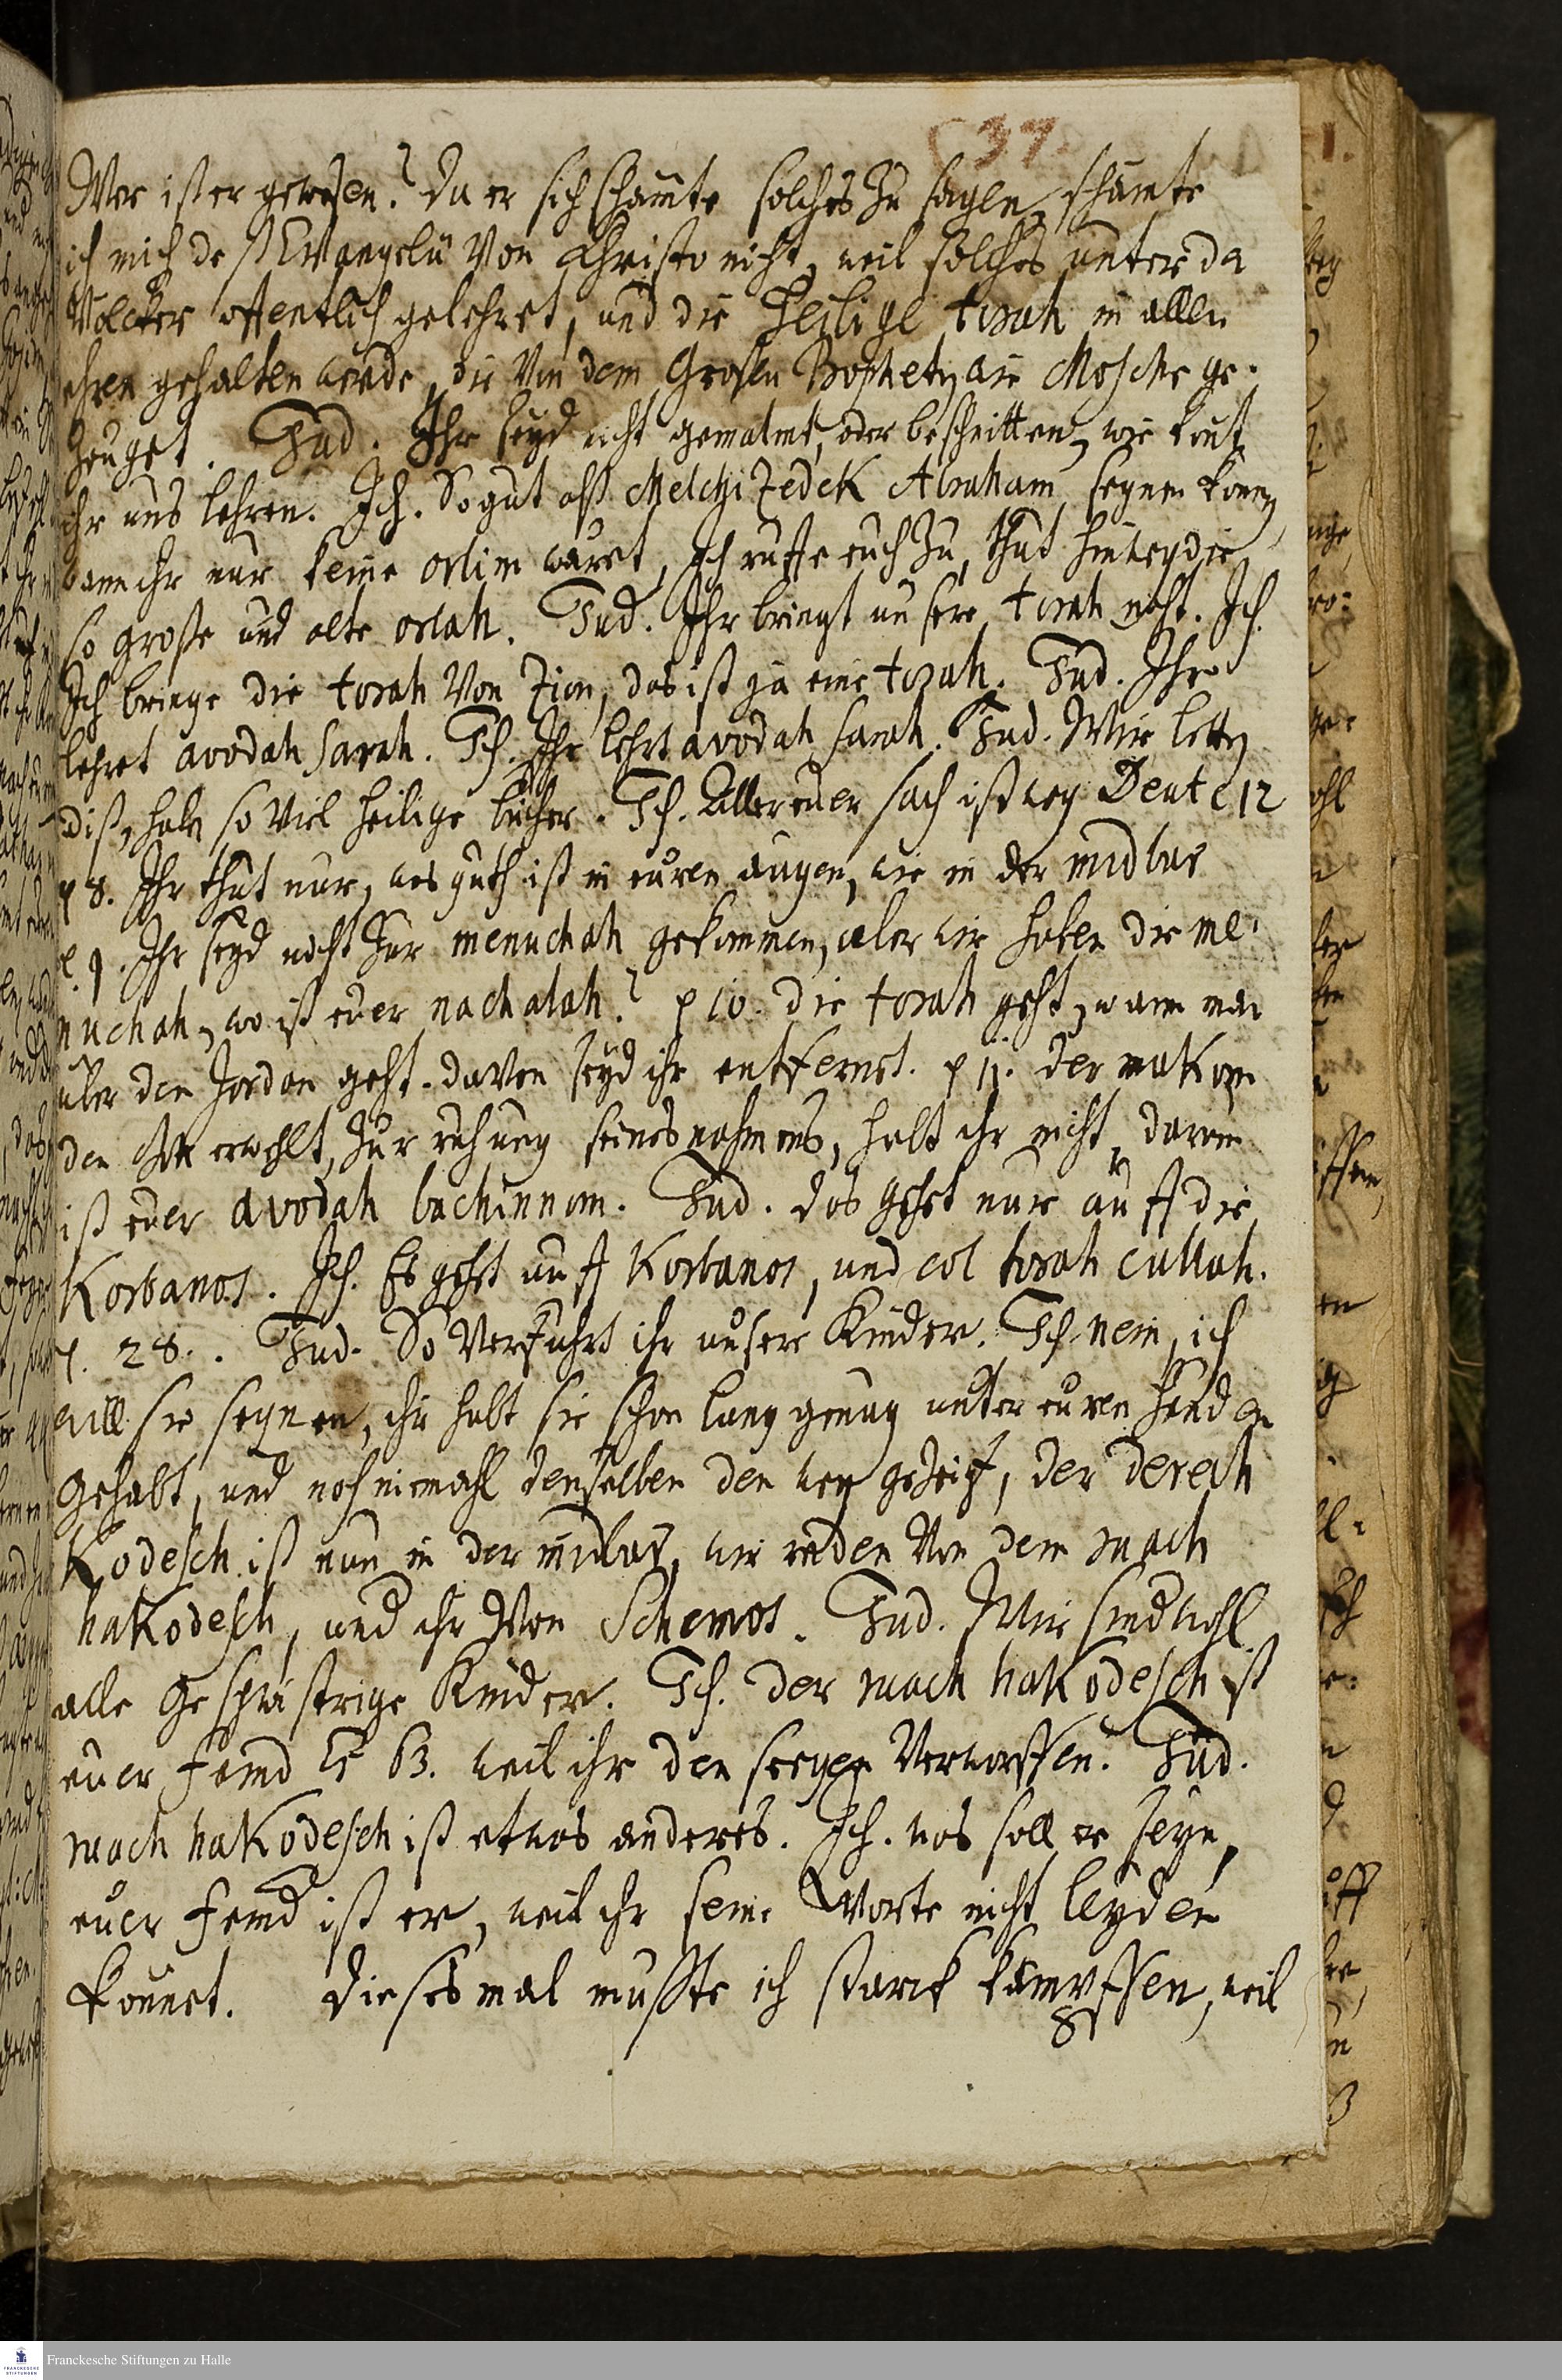 37.
Wer ist er gewesen? Da er sich schämte solches zu sagen, schämte
ich mich deß Evangelii von Christo nicht, weil solches unter da
Völcker offentlich gelehret, und die heilige torah in allen
ehren gehalten werde, die von dem Grosen Propheten wie Mosche ge-
zeuget. Jud. Ihr seyd nicht gemalmt, oder beschnitten, wie könt
ihr uns lehren. Ich. So gut alß Melchizedek Abraham segnen könn,
wann ihr nur keine orlim wäret, Ich ruffe euch zu, thut hinweg die
so große und alte orlah. Jud. Ihr bringt unsere torah nicht. Ich.
Ich bringe die torah von Zion, das ist ja eine torah. Jud. Ihr
lehret avodah sarah. Ich. Ihr lehrt avodah sarah. Jud. Wir
diß, habe so viel heilige bücher. Ich. Aller euer sach ist weg Deut c 12
p 8. Ihr thut nur, was guth ist in euren augen, wie in der midbar
p. 9. Ihr seyd nicht zur menuchah gekommen, aber wir haben die me-
nuchah, wo ist euer nachalah? p 10. die torah geht, wann man
über den Jordan geht. davon seyd ihr entfernet. p 11. der makom
den Gott erwehlt, zur ruhung seines nahmens, habt ihr nicht, darum
ist euer avodah bachinnom. Jud. das gehet nur auff die
Korbanos. Ich. Es geht auff Korbanos, und col torah cullah.
p. 28. Jud. So verführt ihr unsere Kinder. Ich. nein, ich
will sie segnen, ihr habt sie schon lang genug unter euren händen
gehabt, und noch niemahl denselben den weg gezeigt, der derech
Kodesch ist nun in der midbar, wir reden von dem ruach
hakodesch, und ihr von Schemos. Jud. Wir sind wohl
alle Kinder. Ich. der ruach hakodesch ist
euer feind Es 63. weil ihr den seegen verworffen. Jud.
ruach hakodesch ist etwas anderes. Ich. was soll er seyn,
euer feind ist er, weil ihr seine Worte nicht leyden
könnet. Diesesmal mußte ich starck kämpffen, weil
Franckesche Stiftungen zu Halle